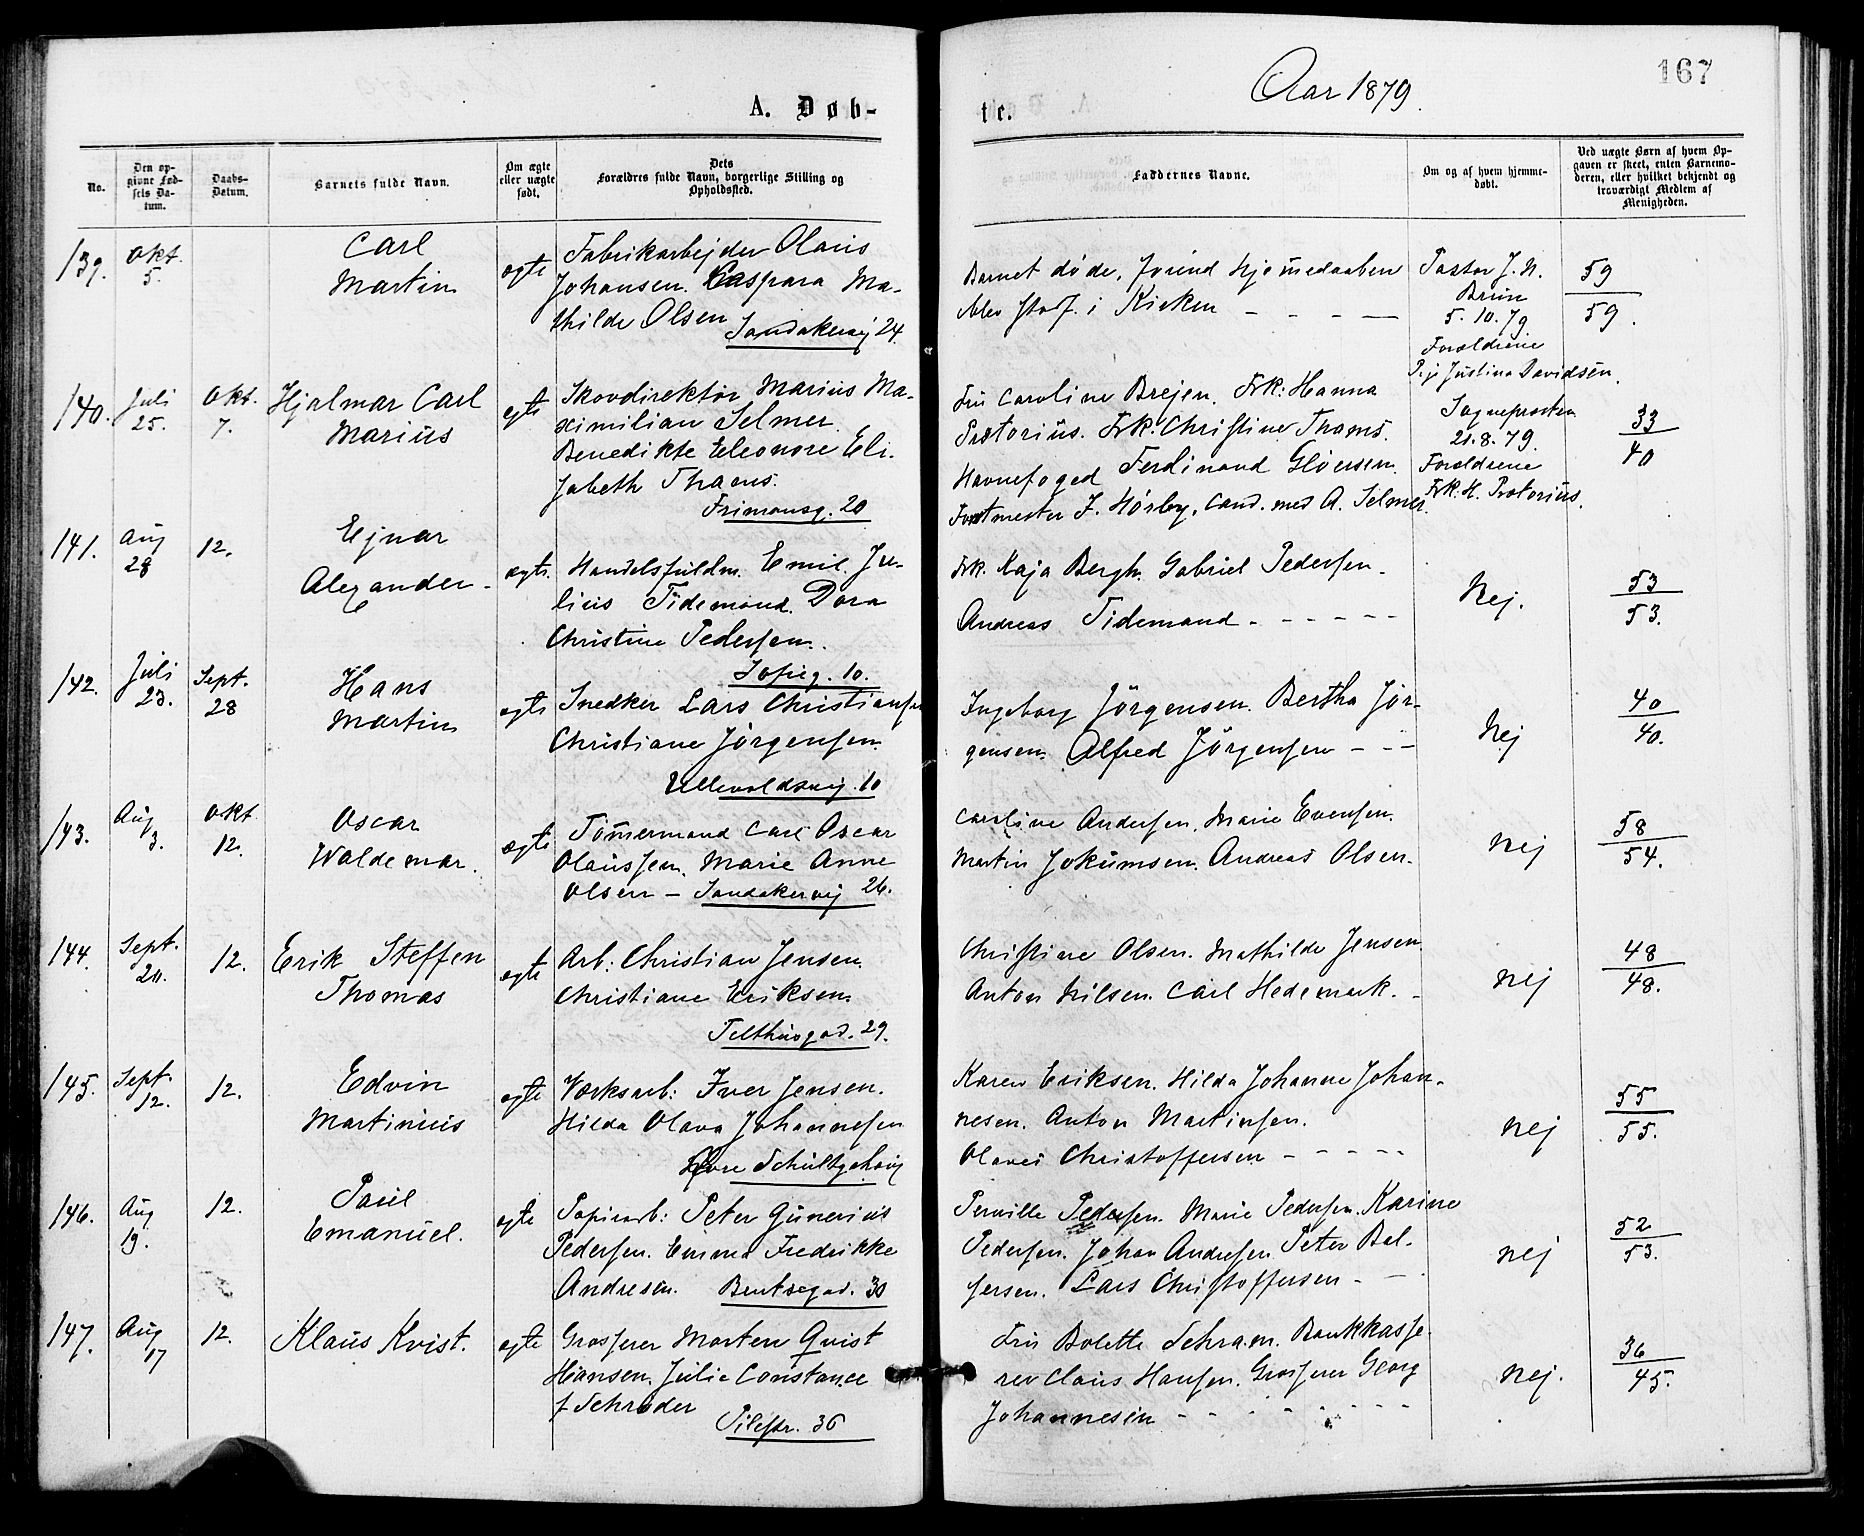 167
Aar 1879.
A. Døb-
te.
No.
Den op-
givne Fød-
sels Da-
tum.
Daabs-
Datum.
Barnets fulde Navn.
Om ægte
eller uægte
født.
Dets
Forældres fulde Navn, borgerlige Stilling og
Opholdssted.
Faddernes Navne.
Om og af hvem hjemme-
døbt.
Ved uægte Børn af hvem Op-
gaven er skeet, enten Barnemo-
deren, eller hvilket bekjendt og
troværdigt Medlem af
Menigheden.
139.
Okt.
5.
Carl
Martin
ægte
Fabrikarbejder Olaus
Johansen. Caspara Ma-
thilde Olsen
Sandakervej 24.
Barnet døde, førend hjemmedaaben
blev stadf. i Kirken - - - -
Pastor J. N.
Brun
5. 10. 79.
Forældrene
P.je Justina Davidsen.
59
59.
140.
Juli
25.
Okt.
7.
Hjalmar Carl
Marius
ægte
Skovdirektør Marius Ma-
ximilian Selmer.
Benedikte Eleonore Eli-
sabeth Thams.
Frimansg. 20
Fru Caroline Brejen. Frk: Hanna
Prætorius. Frk: Christine Thams.
Havnefoged Ferdinand Gløersen.
Forstmester J. Hörbye, Cand. med A. Selmer.
Sognepresten
21. 8. 79.
Forældrene
Frk. H. Prætorius.
33
40
141.
Aug
28
12.
Ejnar
Alexander -
ægte.
Handelsfuldm. Emil Ju-
lius Tidemand. Dora
Christine Pedersen.
Sofieg. 10.
Frk. Kaja Bergh. Gabriel Pedersen.
Andreas Tidemand - - - - - -
Nej.
53
53.
142.
Juli
23.
Sept.
28
Hans
Martin
ægte
Snedker Lars Christiansen
Christiane Jörgensen.
Ullevoldsvej. 10
Ingeborg Jörgensen. Bertha Jør-
gensen. Alfred Jörgensen - - -
Nej
40
40.
143.
Aug
3.
Okt
12.
Oscar
Waldemar.
ægte
Tömmermand Carl Oscar
Olaussen. Marie Anne
Olsen - Sandakervej 26.
Caroline Andersen. Marie Evensen.
Martin Jokumsen. Andreas Olsen.
nej
58
54.
144.
Sept.
20.
12.
Erik Steffen
Thomas
ægte
Arb: Christian Jensen.
Christiane Eriksen.
Telthusgad. 29.
Christine Olsen. Mathilde Jensen.
Anton Nilsen. Carl Hedemark. -
nej
48
48.
145.
Sept.
12.
12.
Edvin
Martinius
ægte
Værksarb: Iver Jensen.
Hilda Olava Johannesen
Øvre Schultzehavej
Karen Eriksen. Hilda Johanne Johan-
nesen. Anton Martinsen.
Olaves Christoffersen - - - - -
nej
55
55.
146.
Aug
19.
12.
Paul
Emanuel.
ægte
Papirarb: Peter Gunerius
Pedersen. Emma Fredrikke
Andresen. Bentsegad. 30
Pernille Pedersen. Marie Pedersen. Karine
Pedersen. Johan Andresen. Peter Bal-
sersen. Lars Christoffersen - -
nej
52
53.
147.
Aug
17
12.
Klaus Kvist.
ægte
Grosserer Morten Qvist
Hansen. Julie Constance
f Schrøder
Pilestr. 36
Fru Bolette Schram. Bankkasse-
rer Claus Hansen. Grosserer Georg
Johannesen - - - - - - -
nej.
36
45.